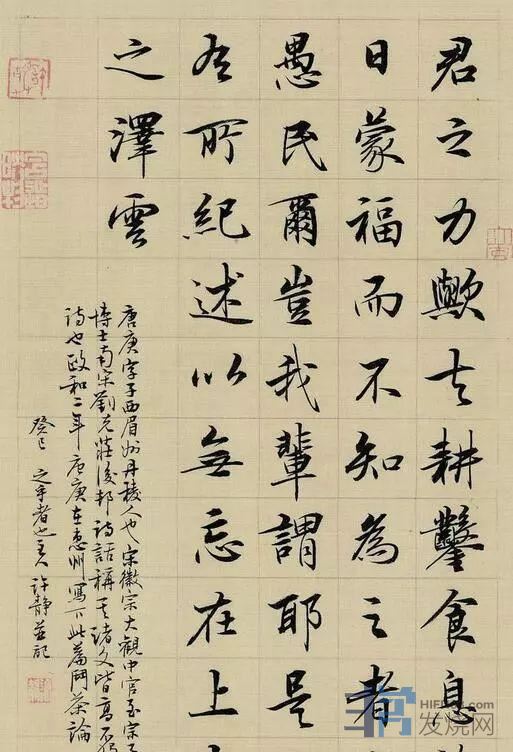 君之力歟夫耕鑿食息
日蒙福而不知為之者
愚民爾豈我輩謂耶是
有所紀述以無忘在上
之澤雲
唐庚字子西眉州丹稜人也宋徽宗大觀中官至宗子
博士南宋劉克莊後邨詩話稱其諸文皆高不獨
詩也政和二年唐庚在惠州寫下此篇鬥茶論
癸巳 之乎者也主人 許靜並記
发烧网